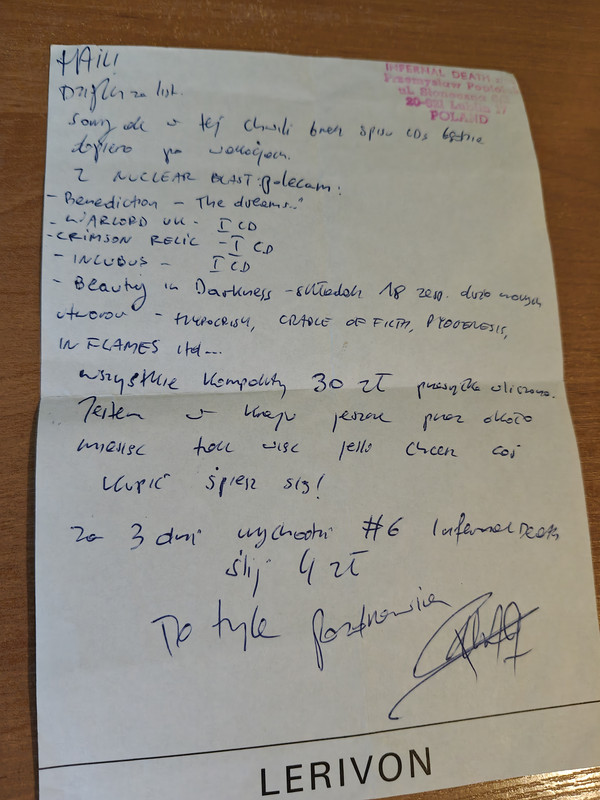 HAIL!
INFERNAL DEATH
Przemysław
ul. Słoneczna
20-
POLAND
Dzięki za list.
Sorry ale w tej chwili brak spisu CDs będzie
dopiero po wakacjach.
Z NUCLEAR BLAST polecam:
- Benediction - The dreams.."
- WARLORD UK - I CD
- CRIMSON RELIC - I CD
- INCUBUS - I CD
- Beauty in Darkness - składak 18 zesp. dużo nowych
utworów - HYPOCRISY, CRADLE OF FILTH, PYOGENESIS,
IN FLAMES itd...
wszystkie kompakty 30 zł przesyłka wliczona.
Jestem w kraju jeszcze przez około
miesiąc tak więc jeśli chcesz coś
kupić śpiesz się!
Za 3 dni wychodzi #6 Infernal Death
ślij 4 zł
To tyle pozdrowienia
LERIVON